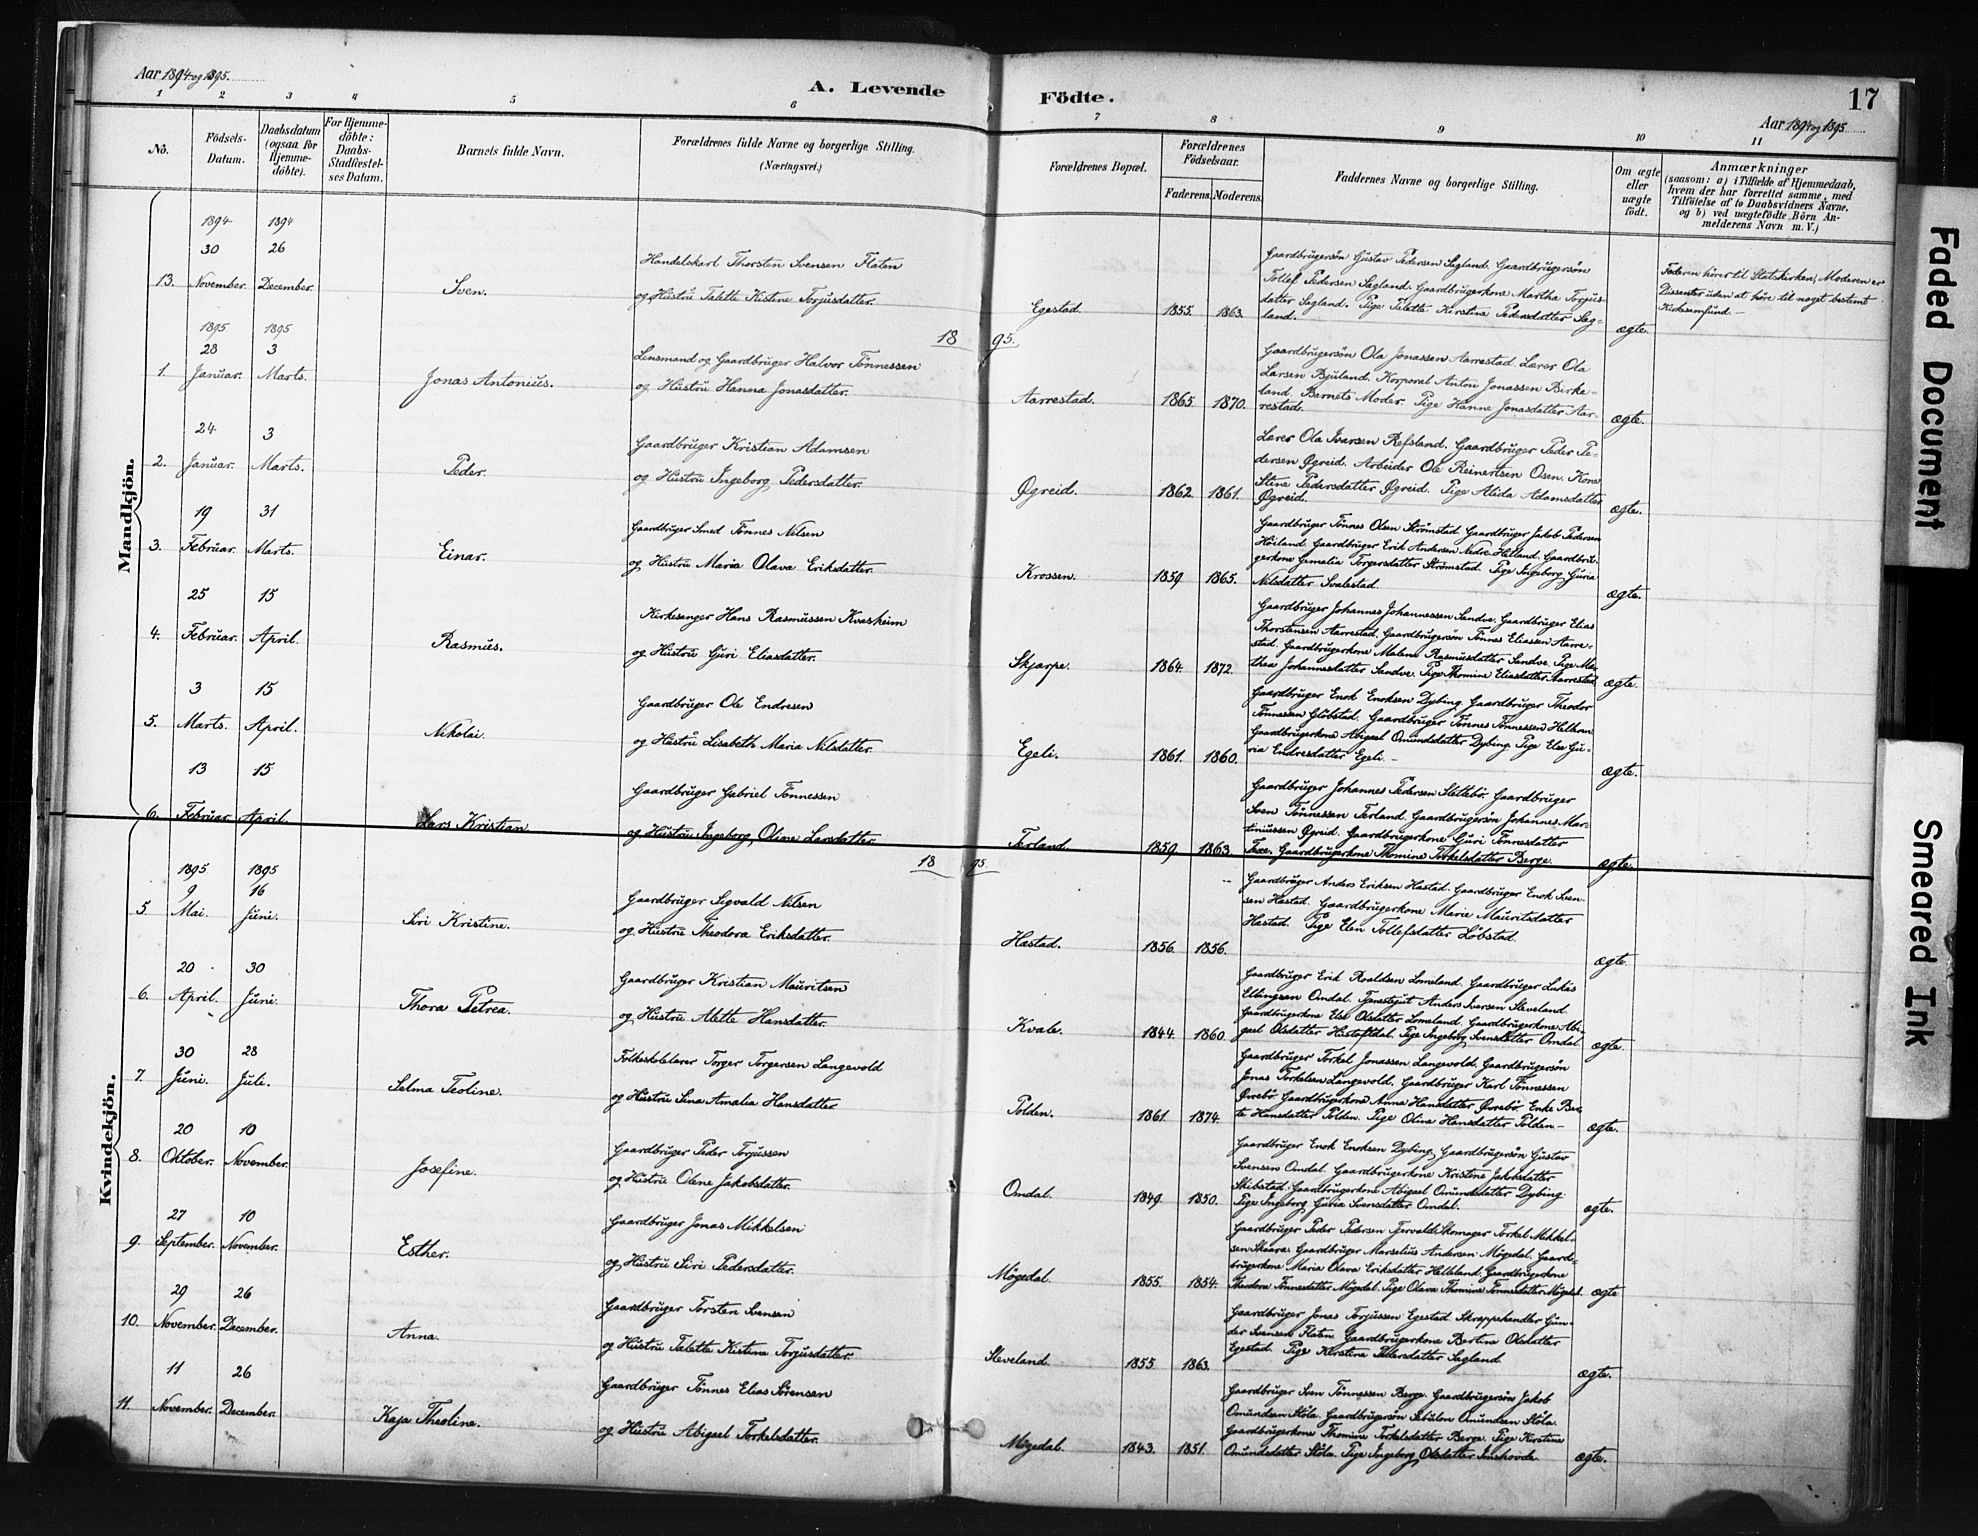 Aar 1894 og 1895.
A. Levende Födte.
17
Aar 1894 og 1895
1 2 3 4 5 6 7 8 9 10 11
No.
Födsels-
Datum.
Daabsdatum
(ogsaa for
Hjemme-
döbte).
For Hjemme-
döbte:
Daabs-
Stadfæstel-
ses Datum.
Barnets fulde Navn.
Forældrenes fulde Navne og borgerlige Stilling.
(Næringsvei.)
Forældrenes Bopæl.
Forældrenes
Födselsaar.
Faderens. Moderens.
Faddernes Navne og borgerlige Stilling.
Om ægte
eller
uægte
födt.
Anmærkninger
(saasom: a) i Tilfælde af Hjemmedaab,
hvem der har forrettet samme, med
Tilföielse af to Daabsvidners Navne,
og b) ved uægtefödte Börn An-
melderens Navn m. V.)
Mandkjön.
1894 1894
30 26
13. November. December.
Sven.
Handelskarl Thorsten Svensen Flaten
og Hustru Talette Kistene Torjusdatter.
Egestad.
1855. 1863.
Gaardbrugersön Gustav Pedersen Sagland. Gaardbrugersön
Tollef Pedersen Sagland. Gaardbrugerkone Martha Torjus-
datter Sagland. Pige Talette Kirstine Pedersdatter Sag-
land.
ægte.
Faderen hörer til Statskirken; Moderen er
Dissenter uden at höre til noget bestemt
Kirkesamfund. –
1895.
1895 1895
28 3
1. Januar. Marts.
Jonas Antonius.
Lensmand og Gaardbruger Halvor Tönnessen
og Hustru Hanna Jonasdatter.
Aarrestad.
1865 1870.
Gaardbrugersön Ola Jonassen Aarrestad. Lærer Ola
Larsen Bjuland. Korporal Anton Jonassen Birke-
land. Barnets Moder. Pige Hanne Jonasdatter Aar-
restad.
ægte.
24 3
2. Januar. Marts.
Peder.
Gaardbruger Kristian Adamsen
og Hustru Ingeborg Pedersdatter.
Øgreid.
1862. 1861.
Lærer Ola Ivarsen Refsland. Gaardbruger Peder Pe-
dersen Øgreid. Arbeider Ole Reinertsen Osen. Kone
Stine Pedersdatter Øgreid. Pige Alida Adamsdatter
Øgreid.
ægte.
19 31
3. Februar. Marts.
Einar.
Gaardbruger Smed Tönnes Nilsen
og Hustru Maria Olava Eriksdatter.
Krossen.
1859. 1865.
Gaardbruger Tönnes Olsen Strömstad. Gaardbruger Jakob Pedersen
Höiland. Gaardbruger Erik Andersen Nedre Helland. Gaardbru-
gerkone Torgersdatter Strömstad. Pige Ingeborg Guria
Nilsdatter Svalestad.
ægte.
25 15
4. Februar. April.
Rasmus.
Kirkesanger Hans Rasmussen Kvasheim
og Hustru Guri Eliasdatter.
Skjærpe.
1864. 1872.
Gaardbruger Johannes Johannessen Sandve. Gaardbruger Elias
Thorstensen Aarrestad. Gaardbrugersön Tönnes Eliassen Aarre-
stad. Gaardbrugerkone Malene Rasmusdatter Sandve. Pige Ma-
thea Johannesdatter Sandve. Pige Thomine Eliasdatter Aarrestad.
ægte.
3 15
5. Marts. April.
Nikolai.
Gaardbruger Ole Endresen
og Hustru Lisabeth Maria Nilsdatter.
Egeli.
1861. 1860.
Gaardbruger Enok Enoksen Dybing. Gaardbruger Theodor
Tönnessen Glöbstad. Gaardbruger Tönnes Tönnessen
Gaardbrugerkone Abigael Omundsdatter Dybing. Pige Else Gu-
ria Endresdatter Egeli. –
ægte.
13 15
6. Februar. April.
Lars Kristian.
Gaardbruger Gabriel Tönnessen
og Hustru Ingeborg Oline Larsdatter.
Terland.
1859. 1863.
Gaardbruger Johannes Pedersen Slettebö. Gaardbruger
Sven Tönnessen Terland. Gaardbrugersön Johannes Mar-
tiniussen Øgreid. Gaardbrugerkone Guri Tönnesdatter
Gaardbrugerkone Thomine Torkelsdatter Berge.
ægte.
Kvindekjön.
1895.
1895 1895
9 16
5. Mai. Juni.
Siri Kristine.
Gaardbruger Sigvald Nilsen
og Hustru Theodora Eriksdatter.
Hæstad.
1856. 1856.
Gaardbruger Anders Eriksen Hæstad. Gaardbruger Enok Sven-
sen Hæstad. Gaardbrugerkone Marie Mauritsdatter
Hæstad. Pige Elen Tollefsdatter Löbstad.
ægte.
20 30
6. April. Juni.
Thora Petrea.
Gaardbruger Kristian Mauritsen
og Hustru Alette Hansdatter.
Kvale.
1844. 1860.
Gaardbruger Erik Roaldsen Lomeland. Gaardbruger Lukas
Omdal. Tjenestegut Anders Iversen Sleveland.
Gaardbrugerkone Else Olsdatter Lomeland. Gaardbrugerkone Abi-
gael Olsdatter Pige Ingeborg Svensdatter Omdal.
ægte.
30 28
7. Juni. Juli.
Selma Teoline.
Folkeskolelærer Torger Torgersen Langevold
og Hustru Sina Amalia Hansdatter
Polden.
1861. 1874.
Gaardbruger Torkel Jonassen Langevold. Gaardbrugersön
Jonas Torkelsen Langevold. Gaardbruger Karl Tönnessen
Övrebö. Gaardbrugerkone Anna Hansdatter Övrebö. Enke Ber-
te Hansdatter Polden. Pige Oline Hansdatter Polden –
ægte.
20 10
8. Oktober. November.
Josefine.
Gaardbruger Peder Torjussen
og Hustru Olene Jakobsdatter.
Omdal.
1849. 1850.
Gaardbruger Enok Enoksen Dybing. Gaardbrugersön Gustav
Svensen Omdal. Gaardbrugerkone Kristine Jakobsdatter
Skibstad. Gaardbrugerkone Abigael Omundsdatter Dybing.
Pige Ingeborg Guria Svensdatter Omdal.
ægte.
27 10
9. September. November.
Esther.
Gaardbruger Jonas Mikkelsen
og Hustru Siri Pedersdatter.
Mögedal.
1855. 1854.
Gaardbruger Peder Pedersen Skomager Torkel Mikkel-
sen Skaara. Gaardbruger Marselius Andersen Mögedal. Gaard-
brugerkone Maria Olava Eriksdatter Helleland. Gaardbrugerkone
Theodora Tönnesdatter Mögedal. Pige Olava Thomine Tönnesdatter Mögedal.
ægte
29 26
10. November. December.
Anna.
Gaardbruger Torsten Svensen
og Hustru Talette Kistina Torjusdatter.
Sleveland.
1855. 1863.
Gaardbruger Jonas Torjussen Egestad. Skreppehandler Gun-
der Svensen Flaten. Gaardbrugerkone Bertine Olsdatter
Egestad. Pige Kirstine Pedersdatter Sagland.
ægte.
11 26
11. November. December.
Kaja Theoline.
Gaardbruger Tönnes Elias Sörensen
og Hustru Abigael Torkelsdatter.
Mögedal.
1843. 1851.
Gaardbruger Sven Tönnessen Berge. Gaardbrugersön Jakob
Omundsen Stöla. Gaardbrugersön Sebulon Omundsen Stöla.
Gaardbrugerkone Thomine Torkelsdatter Berge. Pige Kirstine
Omundsdatter Stöla. Pige Ingeborg Olsdatter
ægte.
Faded Document
Smeared Ink